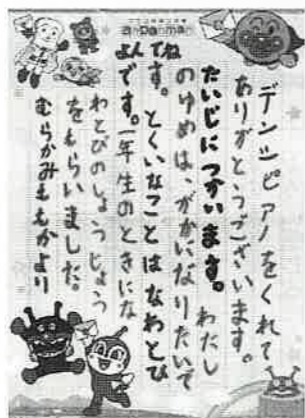 anpanman
よんでね
デンシピアノをくれて
ありがとうございます。
たいじにつかいます。わたし
のゆめは、がかになりたいで
す。とくいなことはなわとび
です。一年生のときにな
わとびのしょうじょう
をもらいました。
むらかみももかより